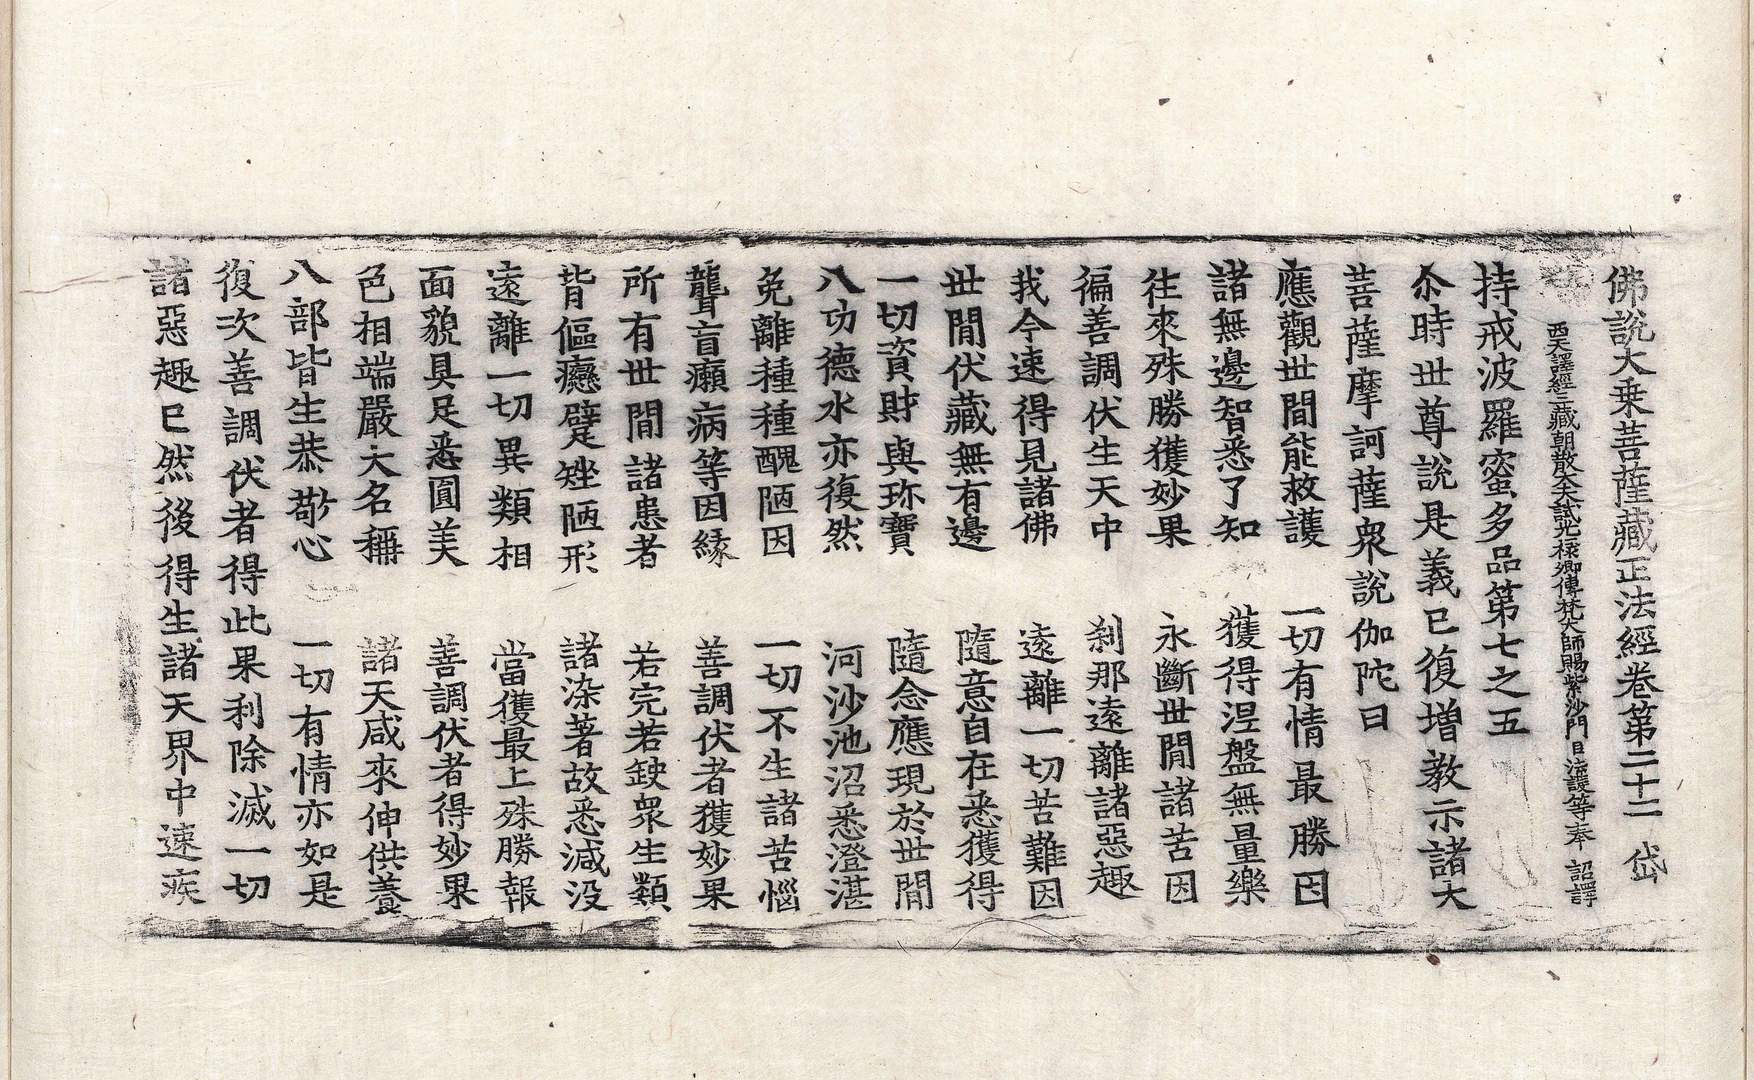 佛說大乗菩薩藏正法經卷第二十二　岱
西天譯經三藏朝散大夫試光禄卿傳梵大師賜紫沙門臣法護等奉　詔譯
持戒波羅蜜多品第七之五
尒時世尊說是義已復増教示諸大
菩薩摩訶薩衆說伽陀曰
應觀世間能救護　一切有情最勝因
諸無邊智悉了知　獲得涅盤無量樂
往來殊勝獲妙果　永斷世間諸苦因
徧善調伏生天中　刹那遠離諸惡趣
我今速得見諸佛　遠離一切苦難因
世間伏藏無有邊　隨意自在悉獲得
一切資財與珎寶　隨念應現於世間
八功德水亦復然　河沙池沼悉澄湛
免離種種醜陋因　一切不生諸苦惱
聾盲癩病等因緣　善調伏者獲妙果
所有世間諸患者　若完若缺衆生類
背傴癭躄矬陋形　諸染著故悉減没
遠離一切異類相　當獲最上殊勝報
面貌具足悉圓美　善調伏者得妙果
色相端嚴大名稱　諸天咸來伸供養
八部皆生恭敬心　一切有情亦如是
復次善調伏者得此果利除滅一切
諸惡趣已然後得生諸天界中速疾